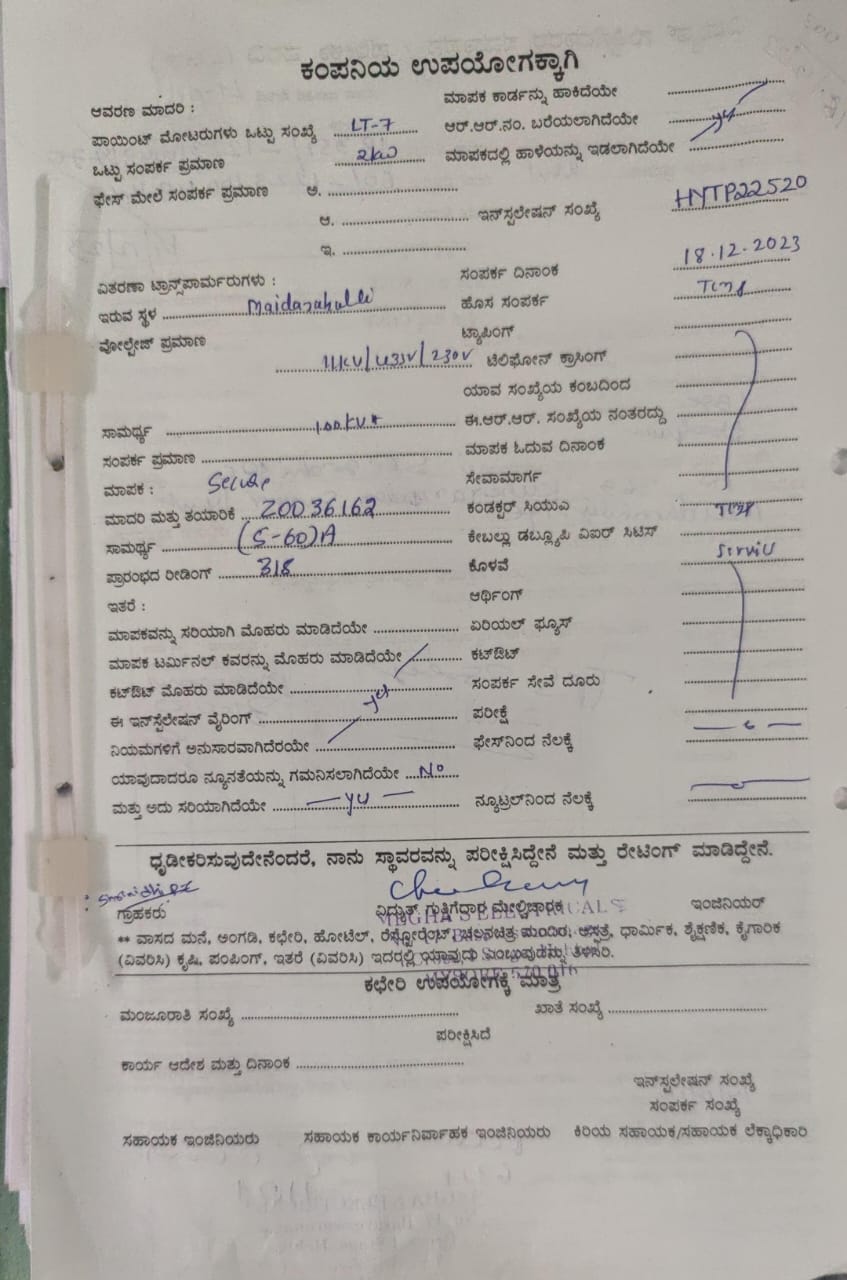 ಕಂಪನಿಯ ಉಪಯೋಗಕ್ಕಾಗಿ
ಆವರಣ ಮಾದರಿ :
ಮಾಪಕ ಕಾರ್ಡನ್ನು ಹಾಕಿದೆಯೇ
ಪಾಯಿಂಟ್ ಮೋಟರುಗಳು ಒಟ್ಟು ಸಂಖ್ಯೆ LT-7
ಆರ್.ಆರ್.ನಂ. ಬರೆಯಲಾಗಿದೆಯೇ yes
ಒಟ್ಟು ಸಂಪರ್ಕ ಪ್ರಮಾಣ 2kw
ಮಾಪಕದಲ್ಲಿ ಹಾಳೆಯನ್ನು ಇಡಲಾಗಿದೆಯೇ
ಫೇಸ್ ಮೇಲೆ ಸಂಪರ್ಕ ಪ್ರಮಾಣ ಅ.
ಆ. ಇನ್‌ಸ್ಪಲೇಷನ್ ಸಂಖ್ಯೆ HYTP22520
ಇ.
ವಿತರಣಾ ಟ್ರಾನ್ಸ್‌ಪಾರ್ಮರುಗಳು :
ಸಂಪರ್ಕ ದಿನಾಂಕ 18.12.2023
ಇರುವ ಸ್ಥಳ Maidanahalli
ಹೊಸ ಸಂಪರ್ಕ Temp
ವೋಲ್ಟೇಜ್ ಪ್ರಮಾಣ
ಟ್ಯಾಪಿಂಗ್
11KV/433V/230V ಟೆಲಿಫೋನ್ ಕ್ರಾಸಿಂಗ್
ಯಾವ ಸಂಖ್ಯೆಯ ಕಂಬದಿಂದ
ಸಾಮರ್ಥ್ಯ 100KVA
ಈ.ಆರ್.ಆರ್. ಸಂಖ್ಯೆಯ ನಂತರದ್ದು
ಸಂಪರ್ಕ ಪ್ರಮಾಣ
ಮಾಪಕ ಓದುವ ದಿನಾಂಕ
ಮಾಪಕ : Secure
ಸೇವಾಮಾರ್ಗ
ಮಾದರಿ ಮತ್ತು ತಯಾರಿಕೆ 20036162
ಕಂಡಕ್ಟರ್ ಸಿಯುಎ Temp
ಸಾಮರ್ಥ್ಯ (5-60)A
ಕೇಬಲ್ಲು ಡಬ್ಲ್ಯೂಪಿ ವಿಐರ್ ಸಿಟಿಸ್
ಪ್ರಾರಂಭದ ರೀಡಿಂಗ್ 318
ಕೊಳವೆ Service
ಇತರೆ :
ಆರ್ಥಿಂಗ್
ಮಾಪಕವನ್ನು ಸರಿಯಾಗಿ ಮೊಹರು ಮಾಡಿದೆಯೇ
ಏರಿಯಲ್ ಫ್ಯೂಸ್
ಮಾಪಕ ಟರ್ಮಿನಲ್ ಕವರನ್ನು ಮೊಹರು ಮಾಡಿದೆಯೇ
ಕಟ್‌ಔಟ್
ಕಟ್‌ಔಟ್ ಮೊಹರು ಮಾಡಿದೆಯೇ yes
ಸಂಪರ್ಕ ಸೇವೆ ದೂರು
ಈ ಇನ್‌ಸ್ಪೆಲೇಷನ್ ವೈರಿಂಗ್
ಪರೀಕ್ಷೆ
ನಿಯಮಗಳಿಗೆ ಅನುಸಾರವಾಗಿದೆರಯೇ
ಫೇಸ್‌ನಿಂದ ನೆಲಕ್ಕೆ
ಯಾವುದಾದರೂ ನ್ಯೂನತೆಯನ್ನು ಗಮನಿಸಲಾಗಿದೆಯೇ No
ಮತ್ತು ಅದು ಸರಿಯಾಗಿದೆಯೇ yes
ನ್ಯೂಟ್ರಲ್‌ನಿಂದ ನೆಲಕ್ಕೆ
ಧೃಡೀಕರಿಸುವುದೇನೆಂದರೆ, ನಾನು ಸ್ಥಾವರವನ್ನು ಪರೀಕ್ಷಿಸಿದ್ದೇನೆ ಮತ್ತು ರೇಟಿಂಗ್ ಮಾಡಿದ್ದೇನೆ.
ಗ್ರಾಹಕರು ವಿದ್ಯುತ್ ಗುತ್ತಿಗೆದಾರ ಮೇಲ್ವಿಚಾರಕ ಇಂಜಿನಿಯರ್
MEGHA'S ELECTRICALS
** ವಾಸದ ಮನೆ, ಅಂಗಡಿ, ಕಛೇರಿ, ಹೋಟೆಲ್, ರೆಸ್ಟೋರೆಂಟ್, ಚಲನಚಿತ್ರ ಮಂದಿರ, ಆಸ್ಪತ್ರೆ, ಧಾರ್ಮಿಕ, ಶೈಕ್ಷಣಿಕ, ಕೈಗಾರಿಕ
(ವಿವರಿಸಿ) ಕೃಷಿ, ಪಂಪಿಂಗ್, ಇತರೆ (ವಿವರಿಸಿ) ಇದರಲ್ಲಿ ಯಾವುದು ಎಂಬುವುದನ್ನು ತಿಳಿಸಿರಿ.
ಕಛೇರಿ ಉಪಯೋಗಕ್ಕೆ ಮಾತ್ರ
ಮಂಜೂರಾತಿ ಸಂಖ್ಯೆ ಖಾತೆ ಸಂಖ್ಯೆ
ಪರೀಕ್ಷಿಸಿದೆ
ಕಾರ್ಯ ಆದೇಶ ಮತ್ತು ದಿನಾಂಕ
ಇನ್‌ಸ್ಪಲೇಷನ್ ಸಂಖ್ಯೆ
ಸಂಪರ್ಕ ಸಂಖ್ಯೆ
ಸಹಾಯಕ ಇಂಜಿನಿಯರು ಸಹಾಯಕ ಕಾರ್ಯನಿರ್ವಾಹಕ ಇಂಜಿನಿಯರು ಕಿರಿಯ ಸಹಾಯಕ/ಸಹಾಯಕ ಲೆಕ್ಕಾಧಿಕಾರಿ